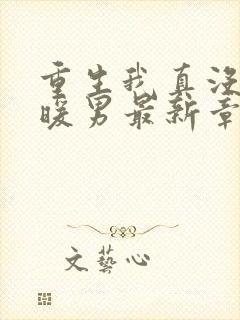 重生我真没
暖男最新章
文藝心